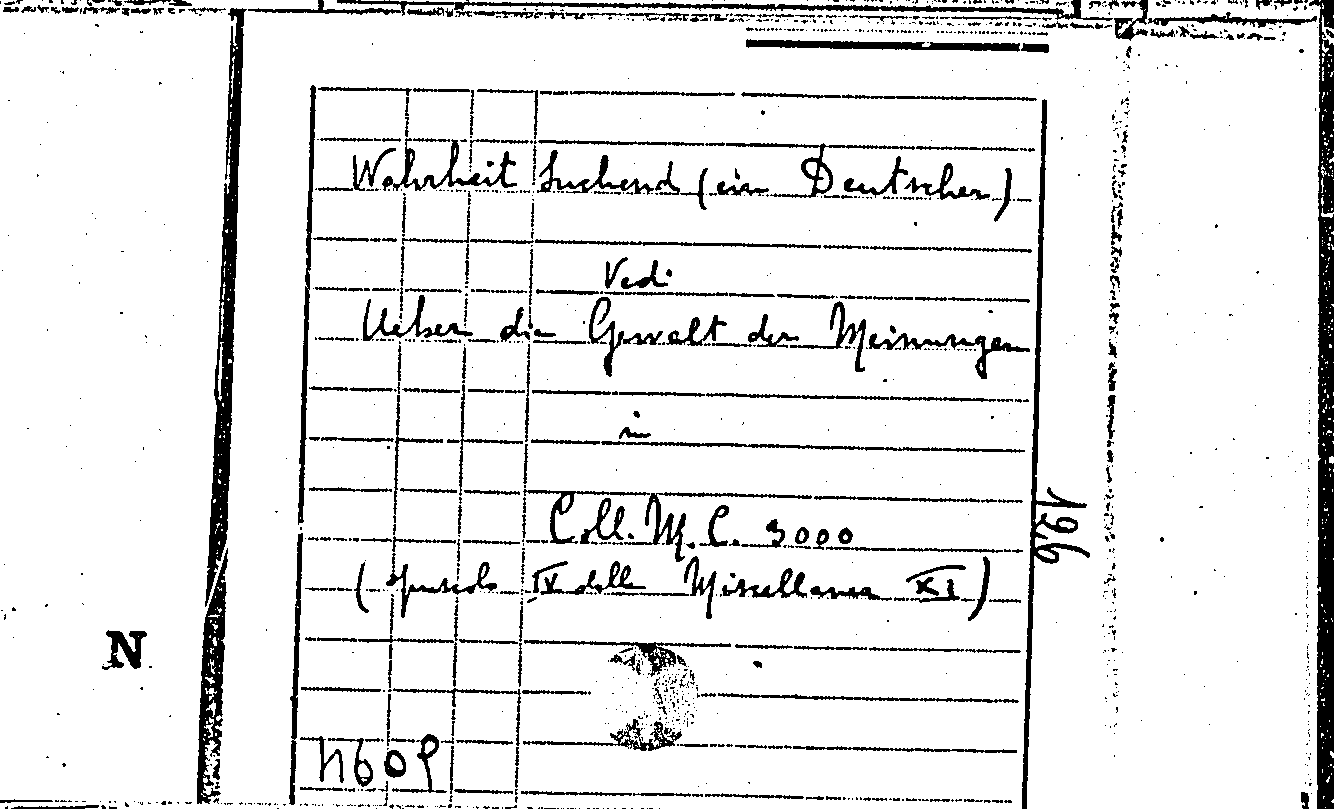 Wahrheit Suchend (ein Deutscher)
Vedi
Ueber die Gewalt der Meinungen
in
Coll. M. C. 3000
(opuscolo IV della Miscellanea XI)
126
N